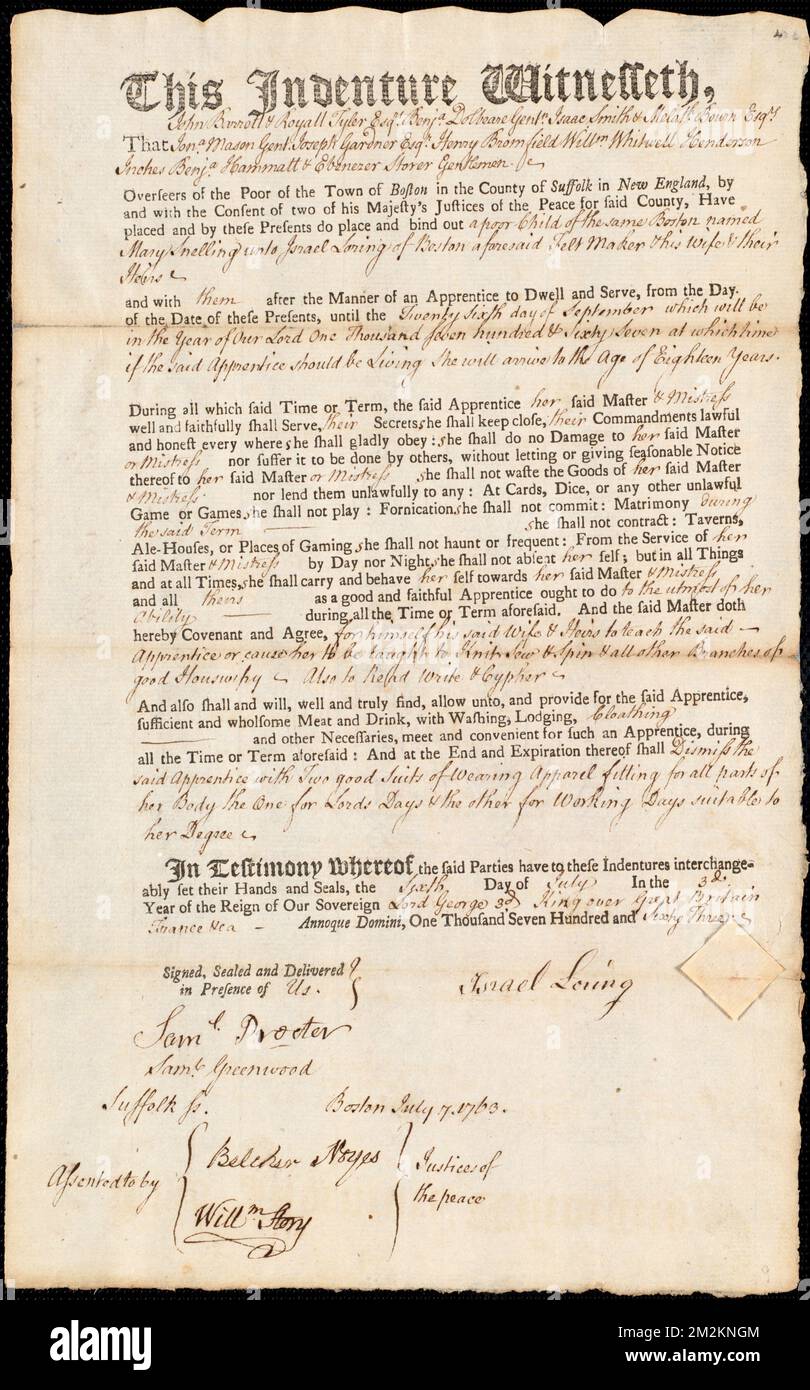 4
This Indenture Witnesseth,
John Barrett & Royall Tyler Esqrs Benja Dolbeare Gentn Isaac Smith & Bowen Esqrs
That Jona Mason Gent Joseph Gardner Esqr Henry Bromfield Willm Whitwell Henderson
Inches Benja Hammatt & Ebenezer Storer Gentlemen
Overseers of the Poor of the Town of Boston in the County of Suffolk in New England, by
and with the Consent of two of his Majesty's Justices of the Peace for said County, Have
placed and by these Presents do place and bind out a poor Child of the same Boston named
Mary Snelling unto Israel Loring of Boston aforesaid Felt Maker & his Wife & their
Heirs
and with them after the Manner of an Apprentice to Dwell and Serve, from the Day
of the Date of these Presents, until the Twenty Sixth day of September which will be
in the Year of Our Lord One Thousand Seven hundred & Sixty Seven at which time
if the said Apprentice should be Living She will arrive to the Age of Eighteen Years.
During all which said Time or Term, the said Apprentice her said Master & Mistress
well and faithfully shall Serve, their Secrets she shall keep close, their Commandments lawful
and honest every where she shall gladly obey: she shall do no Damage to her said Master
or Mistress nor suffer it to be done by others, without letting or giving seasonable Notice
thereof to her said Master or Mistress she shall not waste the Goods of her said Master
& Mistress nor lend them unlawfully to any: At Cards, Dice, or any other unlawful
Game or Games, she shall not play: Fornication she shall not commit: Matrimony during
the said Term she shall not contract: Taverns,
Ale-Houses, or Places of Gaming she shall not haunt or frequent: From the Service of her
said Master & Mistress by Day nor Night she shall not absent her self; but in all Things
and at all Times, she shall carry and behave her self towards her said Master & Mistress
and all theirs as a good and faithful Apprentice ought to do to the utmost of her
Ability during all the Time or Term aforesaid. And the said Master doth
hereby Covenant and Agree, for himself his said Wife & Heirs to teach the said
Apprentice or cause her to be taught to Knit Sew & Spin & all other Branches of
good Houswifry Also to Read Write & Cypher
And also shall and will, well and truly find, allow unto, and provide for the said Apprentice,
sufficient and wholsome Meat and Drink, with Washing, Lodging, Cloathing
and other Necessaries, meet and convenient for such an Apprentice, during
all the Time or Term aforesaid: And at the End and Expiration thereof shall Dismiss the
said Apprentice with Two good Suits of Wearing Apparil fitting for all parts of
her Body the One for Lords Days & the other for Working Days suitable to
her Degree
In Testimony whereof, the said Parties have to these Indentures interchange-
ably set their Hands and Seals, the Sixth Day of July In the 3d
Year of the Reign of Our Sovereign Lord George 3d King over Great Britain
France &ca Annoque Domini, One Thousand Seven Hundred and Sixty Three
Signed, Sealed and Delivered
in Presence of Us.
Israel Loring
Saml Procter
Saml Greenwood
Suffolk ss. Boston July 7. 1763.
Assented to by
Belcher Noyes
Willm Story
Justices of
the peace
alamy
Image ID: 2M2KNGM
www.alamy.com